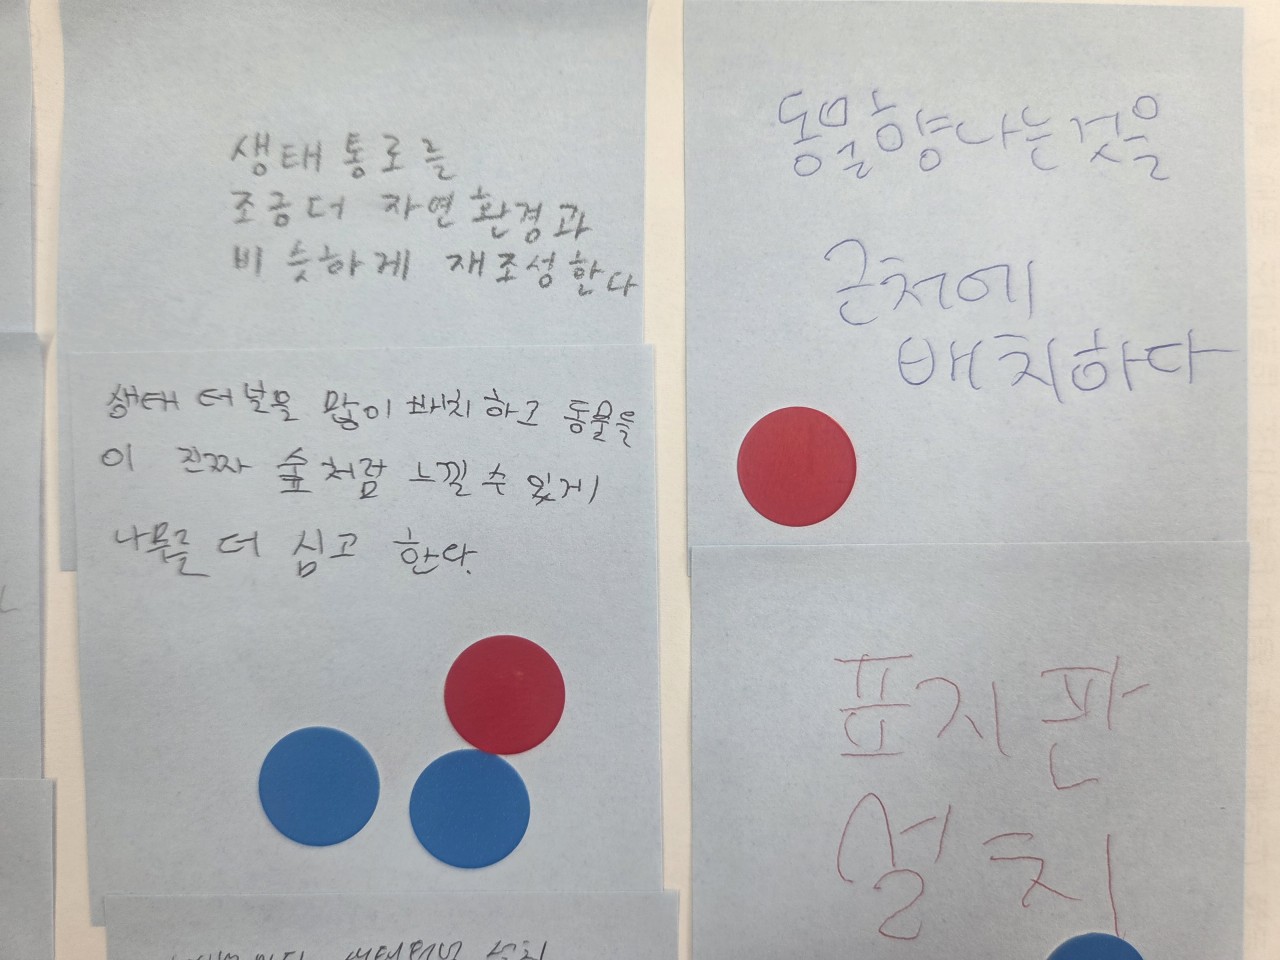 생태통로를
조금더 자연환경과
비슷하게 재조성한다
생태 터널을 많이 배치하고 동물들
이 진짜 숲처럼 느낄 수 있게
나무를 더 심고 한다.
생태터널 설치
동물향나는것을
근처에
배치하다
표지판
설치